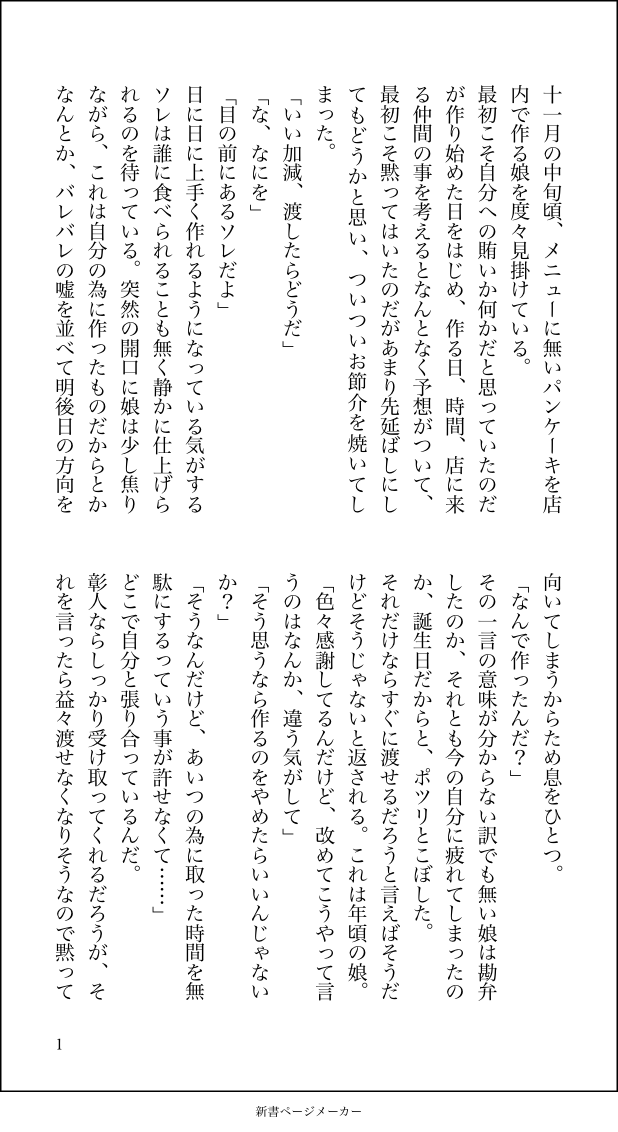 十一月の中旬頃、メニューに無いパンケーキを店
内で作る娘を度々見掛けている。
最初こそ自分への賄いか何かだと思っていたのだ
が作り始めた日をはじめ、作る日、時間、店に来
る仲間の事を考えるとなんとなく予想がついて、
最初こそ黙ってはいたのだがあまり先延ばしにし
てもどうかと思い、ついついお節介を焼いてし
まった。
「いい加減、渡したらどうだ」
「な、なにを」
「目の前にあるソレだよ」
日に日に上手く作れるようになっている気がする
ソレは誰に食べられることも無く静かに仕上げら
れるのを待っている。突然の開口に娘は少し焦り
ながら、これは自分の為に作ったものだからとか
なんとか、バレバレの嘘を並べて明後日の方向を
向いてしまうからため息をひとつ。
「なんで作ったんだ？」
その一言の意味が分からない訳でも無い娘は勘弁
したのか、それとも今の自分に疲れてしまったの
か、誕生日だからと、ポツリとこぼした。
それだけならすぐに渡せるだろうと言えばそうだ
けどそうじゃないと返される。これは年頃の娘。
「色々感謝してるんだけど、改めてこうやって言
うのはなんか、違う気がして」
「そう思うなら作るのをやめたらいいんじゃない
か？」
「そうなんだけど、あいつの為に取った時間を無
駄にするっていう事が許せなくて……」
どこで自分と張り合っているんだ。
彰人ならしっかり受け取ってくれるだろうが、そ
れを言ったら益々渡せなくなりそうなので黙って
1
新書ページメーカー